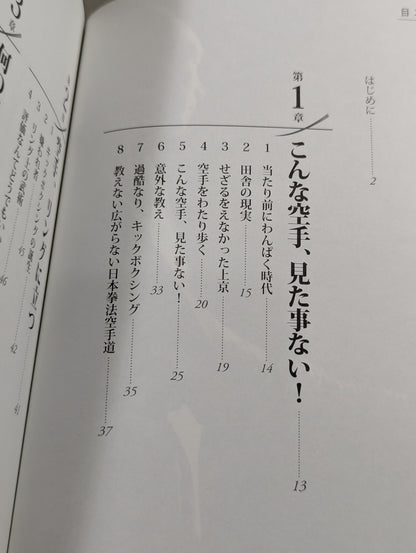 目
はじめに………2
第1章 こんな空手、見た事ない！………13
1 当たり前にわんぱく時代………14
2 田舎の現実………15
3 せざるをえなかった上京………19
4 空手をわたり歩く………20
5 こんな空手、見た事ない！………25
6 意外な教え………33
7 過酷なり、キックボクシング………35
8 教えない広がらない日本拳法空手道………37
章
リングに立つ
41
42
45
46